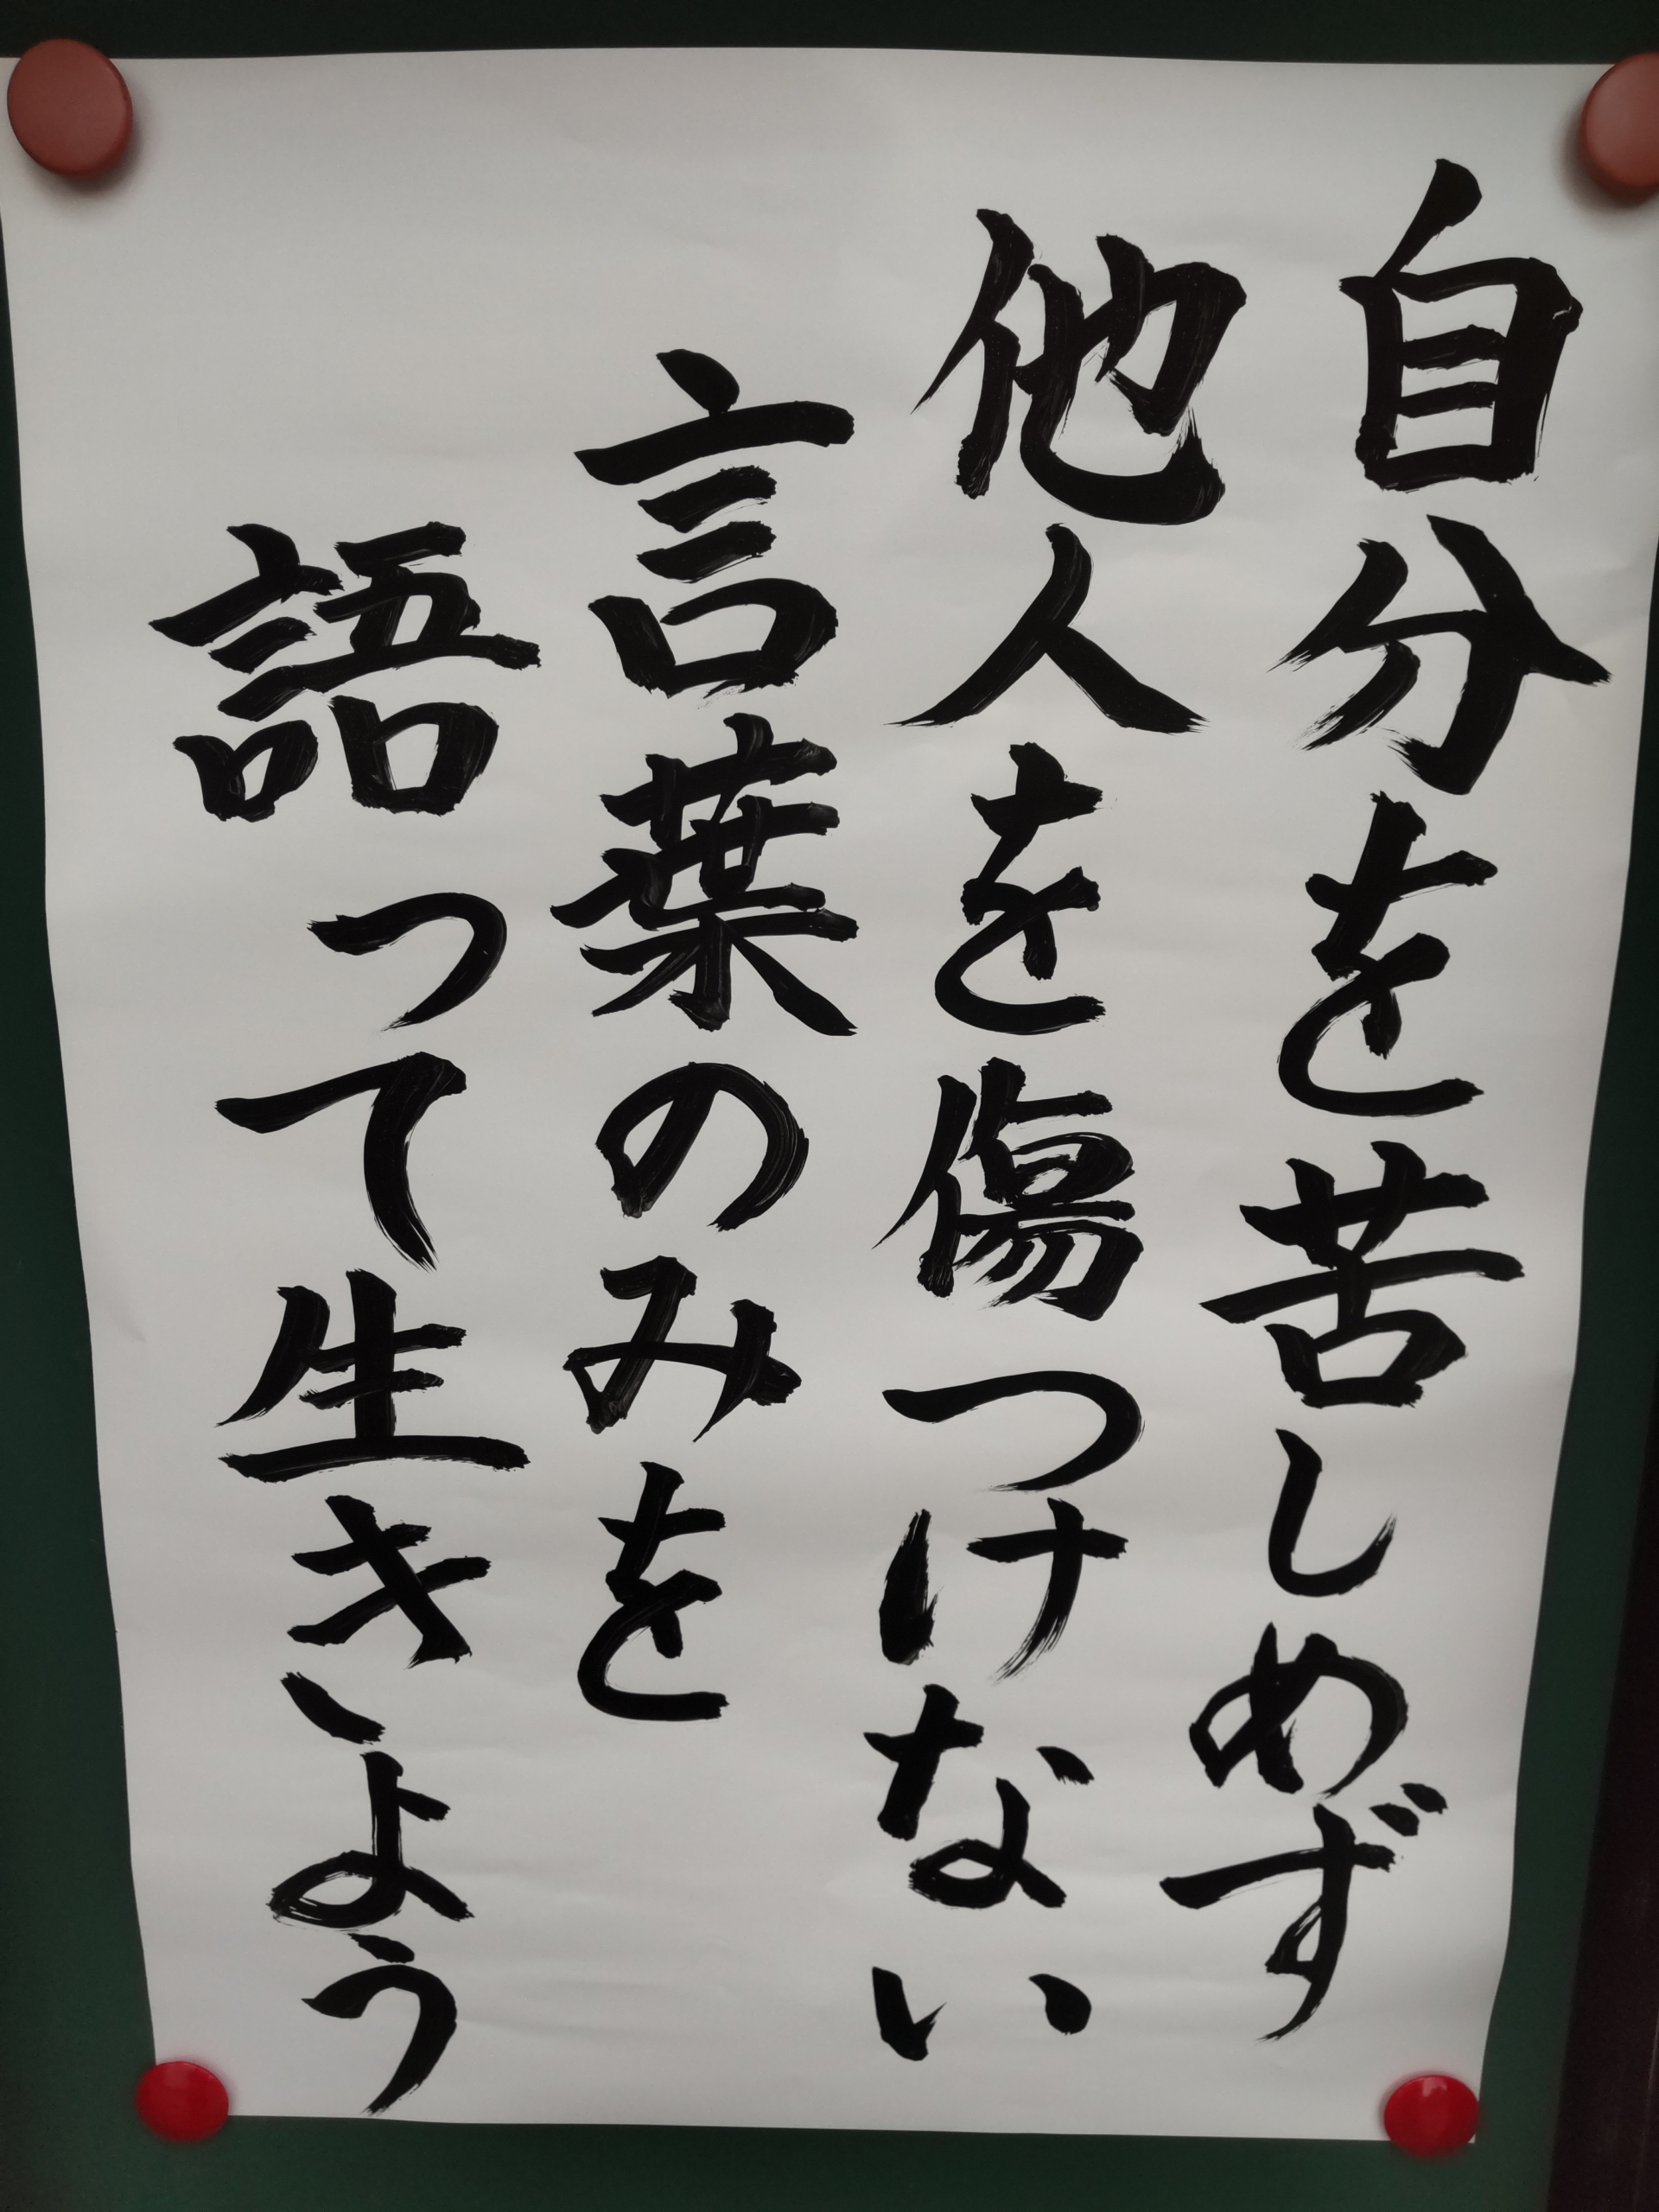 自分を苦しめず
他人を傷つけない
言葉のみを
語って生きよう